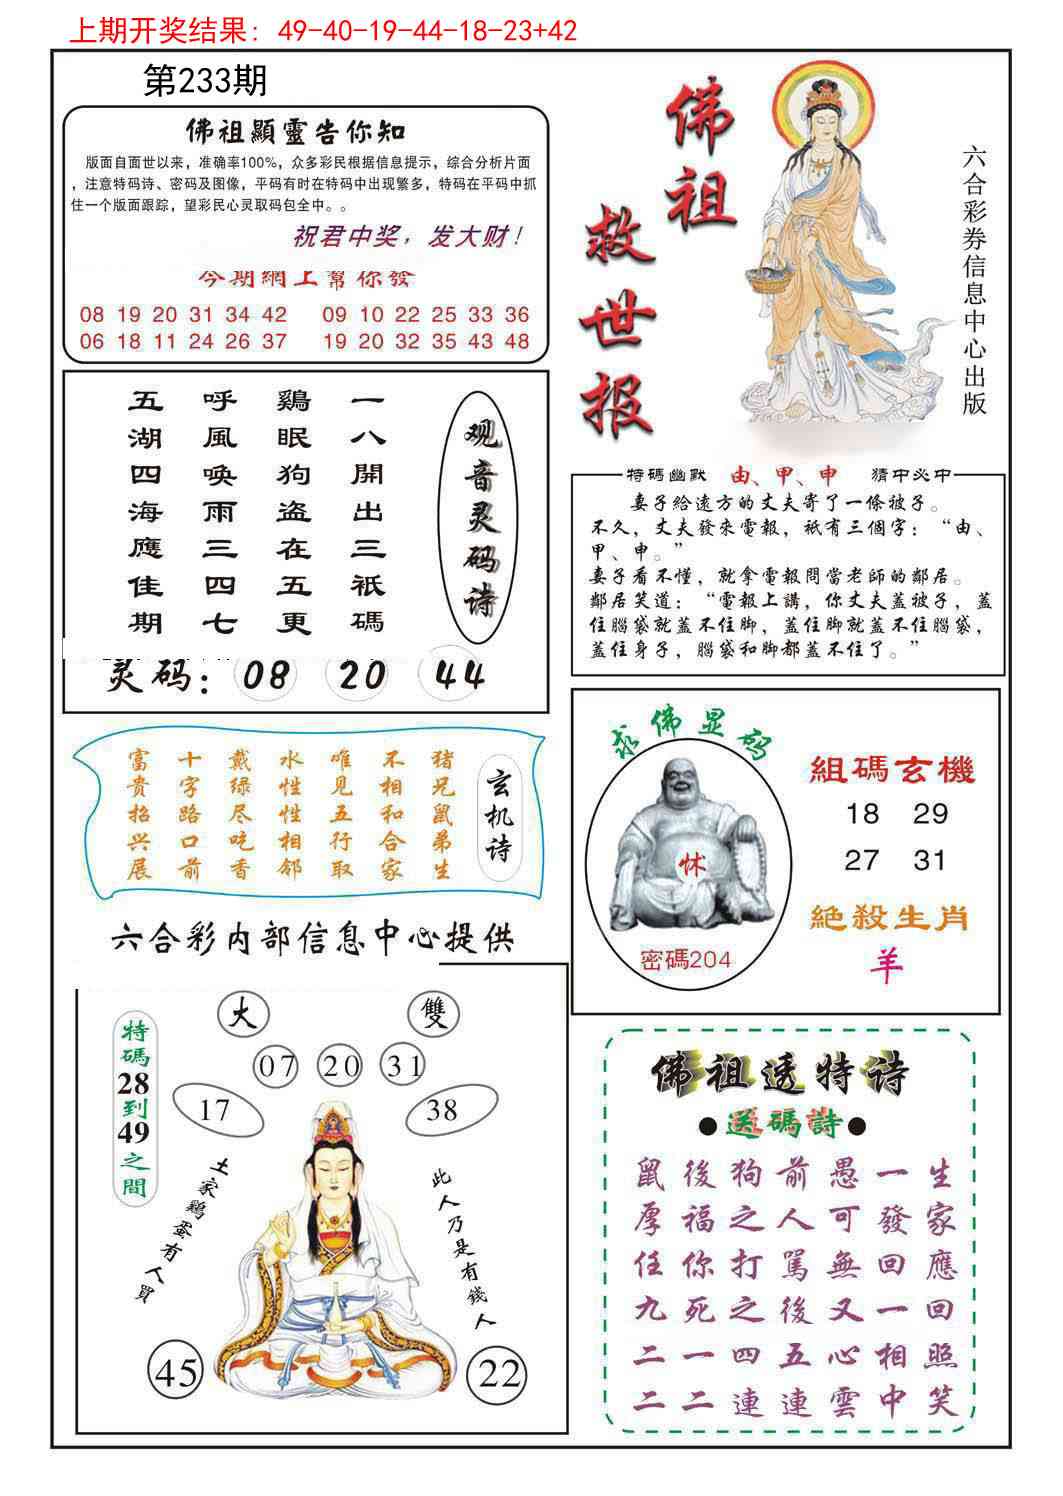 上期开奖结果: 49-40-19-44-18-23+42
第233期
佛祖顯靈告你知
版面自面世以来，准确率100%，众多彩民根据信息提示，综合分析片面
，注意特码诗、密码及图像，平码有时在特码中出现繁多，特码在平码中抓
住一个版面跟踪，望彩民心灵取码包全中。。
祝君中奖，发大财！
今期網上幫你發
08 19 20 31 34 42 09 10 22 25 33 36
06 18 11 24 26 37 19 20 32 35 43 48
佛祖
救世报
六合彩券信息中心出版
观音灵码诗
一八開出三祇碼
鷄眠狗盗在五更
呼風唤雨三四七
五湖四海應佳期
灵码：08 20 44
特碼幽默 由、甲、申 猜中必中
妻子給遠方的丈夫寄了一條被子。
不久，丈夫發來電報，祇有三個字：“由、
甲、申。”
妻子看不懂，就拿電報問當老師的鄰居。
鄰居笑道：“電報上講，你丈夫蓋被子，蓋
住腦袋就蓋不住脚，蓋住脚就蓋不住腦袋，
蓋住身子，腦袋和脚都蓋不住了。”
玄机诗
猪兄鼠弟生
不相和合家
唯见五行取
水性性相邻
戴绿尽吃香
十字路口前
富贵招兴展
求佛显码
密碼204
組碼玄機
18 29
27 31
絕殺生肖
羊
六合彩内部信息中心提供
大 雙
07 20 31
17 38
特碼28到49之間
土家鷄蛋有人買
此人乃是有錢人
45 22
佛祖透特诗
●送碼詩●
鼠後狗前愚一生
厚福之人可發家
任你打罵無回應
九死之後又一回
二一四五心相照
二二連連雲中笑